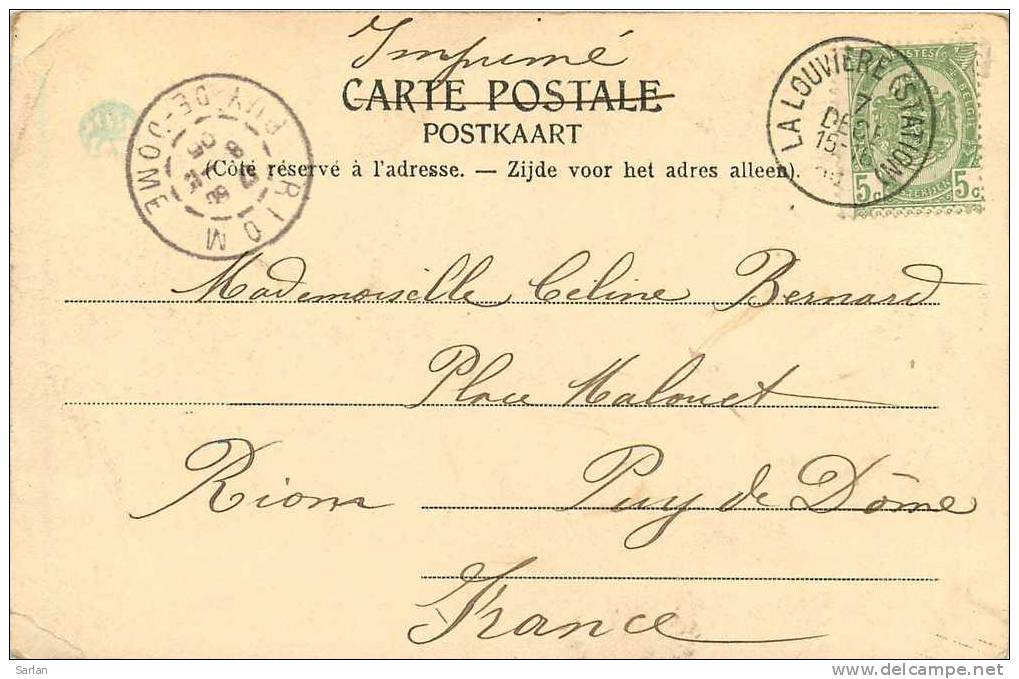 Imprimé
CARTE POSTALE
POSTKAART
(Côté réservé à l'adresse. — Zijde voor het adres alleen).
LA LOUVIÈRE (STATION)
7
DECE
15-
POSTES
BELGIQUE
5c 5c
RIOM
PUY-DE-DOME
Mademoiselle Céline Bernard
Place Malouet
Riom Puy de Dôme
France
Sarlan
www.delcampe.net